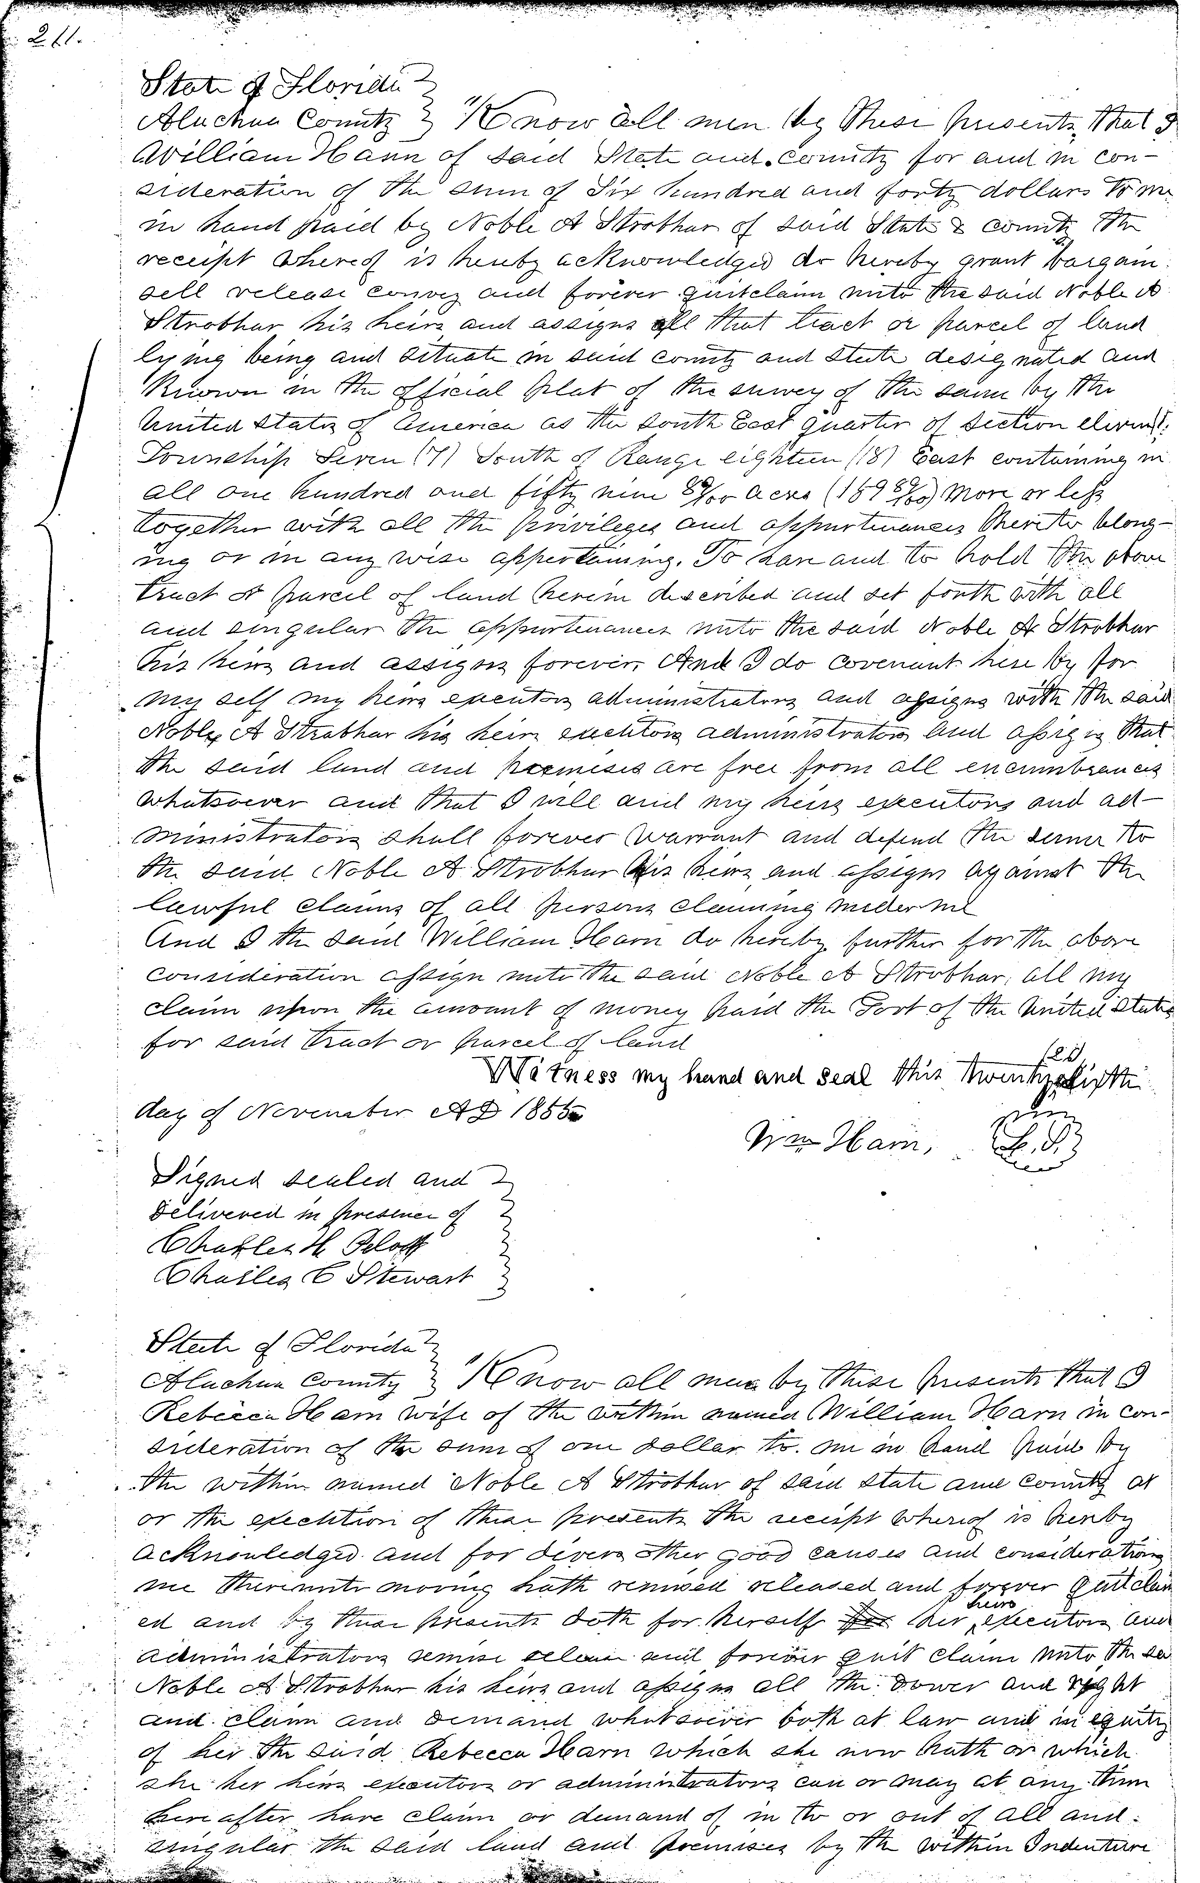 211.
State of Florida }
Alachua County } "Know all men by these presents, that I
William Harn of said State and County for and in con-
sideration of the sum of Six hundred and forty dollars to me
in hand paid by Noble A Strobhar of said State & county the
receipt whereof is hereby acknowledged do hereby grant bargain
sell release convey and forever quitclaim unto the said Noble A
Strobhar his heirs and assigns all that tract or parcel of land
lying being and situate in said county and state designated and
Known in the official plat of the survey of the same by the
United States of America as the South East quarter of section eleven
Township Seven (7) South of Range eighteen (18) East containing in
all one hundred and fifty nine 89/100 acres (159 89/100) More or less
together with all the privileges and appurtenances thereto belong-
ing or in any wise appertaining. To have and to hold the above
tract or parcel of land herein described and set forth with all
and singular the appurtenances unto the said Noble A Strobhar
his heirs and assigns forever. And I do covenant here by for
my self my heirs executors administrators and assigns with the said
Noble A Strobhar his heirs executors administrators and assigns that
the said land and premises are free from all encumbrances
whatsoever and that I will and my heirs executors and ad-
ministrators shall forever warrant and defend the same to
the said Noble A Strobhar his heirs and assigns against the
lawful claims of all persons claiming under me
And I the said William Harn do hereby further for the above
consideration assign unto the said Noble A Strobhar, all my
claim upon the amount of money paid the Govt of the United States
for said tract or parcel of land
Witness my hand and seal this twenty sixth
day of November AD 1855
Wm Harn, L.S.
Signed sealed and }
delivered in presence of }
Charles H
Charles C Stewart
State of Florida }
Alachua County } "Know all men by these presents that I
Rebecca Harn wife of the within named William Harn in con-
sideration of the sum of one dollar to me in hand paid by
the within named Noble A Strobhar of said state and county at
or the execution of these presents the receipt whereof is hereby
acknowledged and for divers other good causes and considerations
me thereunto moving hath remised released and forever quitclaim
ed and by these presents doth for herself her heirs executors and
administrators remise release and forever quit claim unto the sa
Noble A Strobhar his heirs and assigns all the dower and right
and claim and demand whatsoever both at law and in equity
of her the said Rebecca Harn which she now hath or which
she her heirs executors or administrators can or may at any time
hereafter have claim or demand of in to or out of all and
singular the said land and premises by the within Indenture